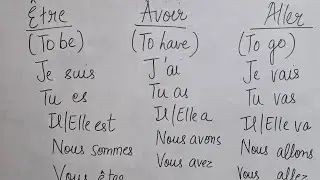 Être Avoir Aller
(To be) (To have) (To go)
Je suis J'ai Je vais
Tu es Tu as Tu vas
Il/Elle est Il/Elle a Il/Elle va
Nous sommes Nous avons Nous allons
Vous êtes Vous avez Vous allez